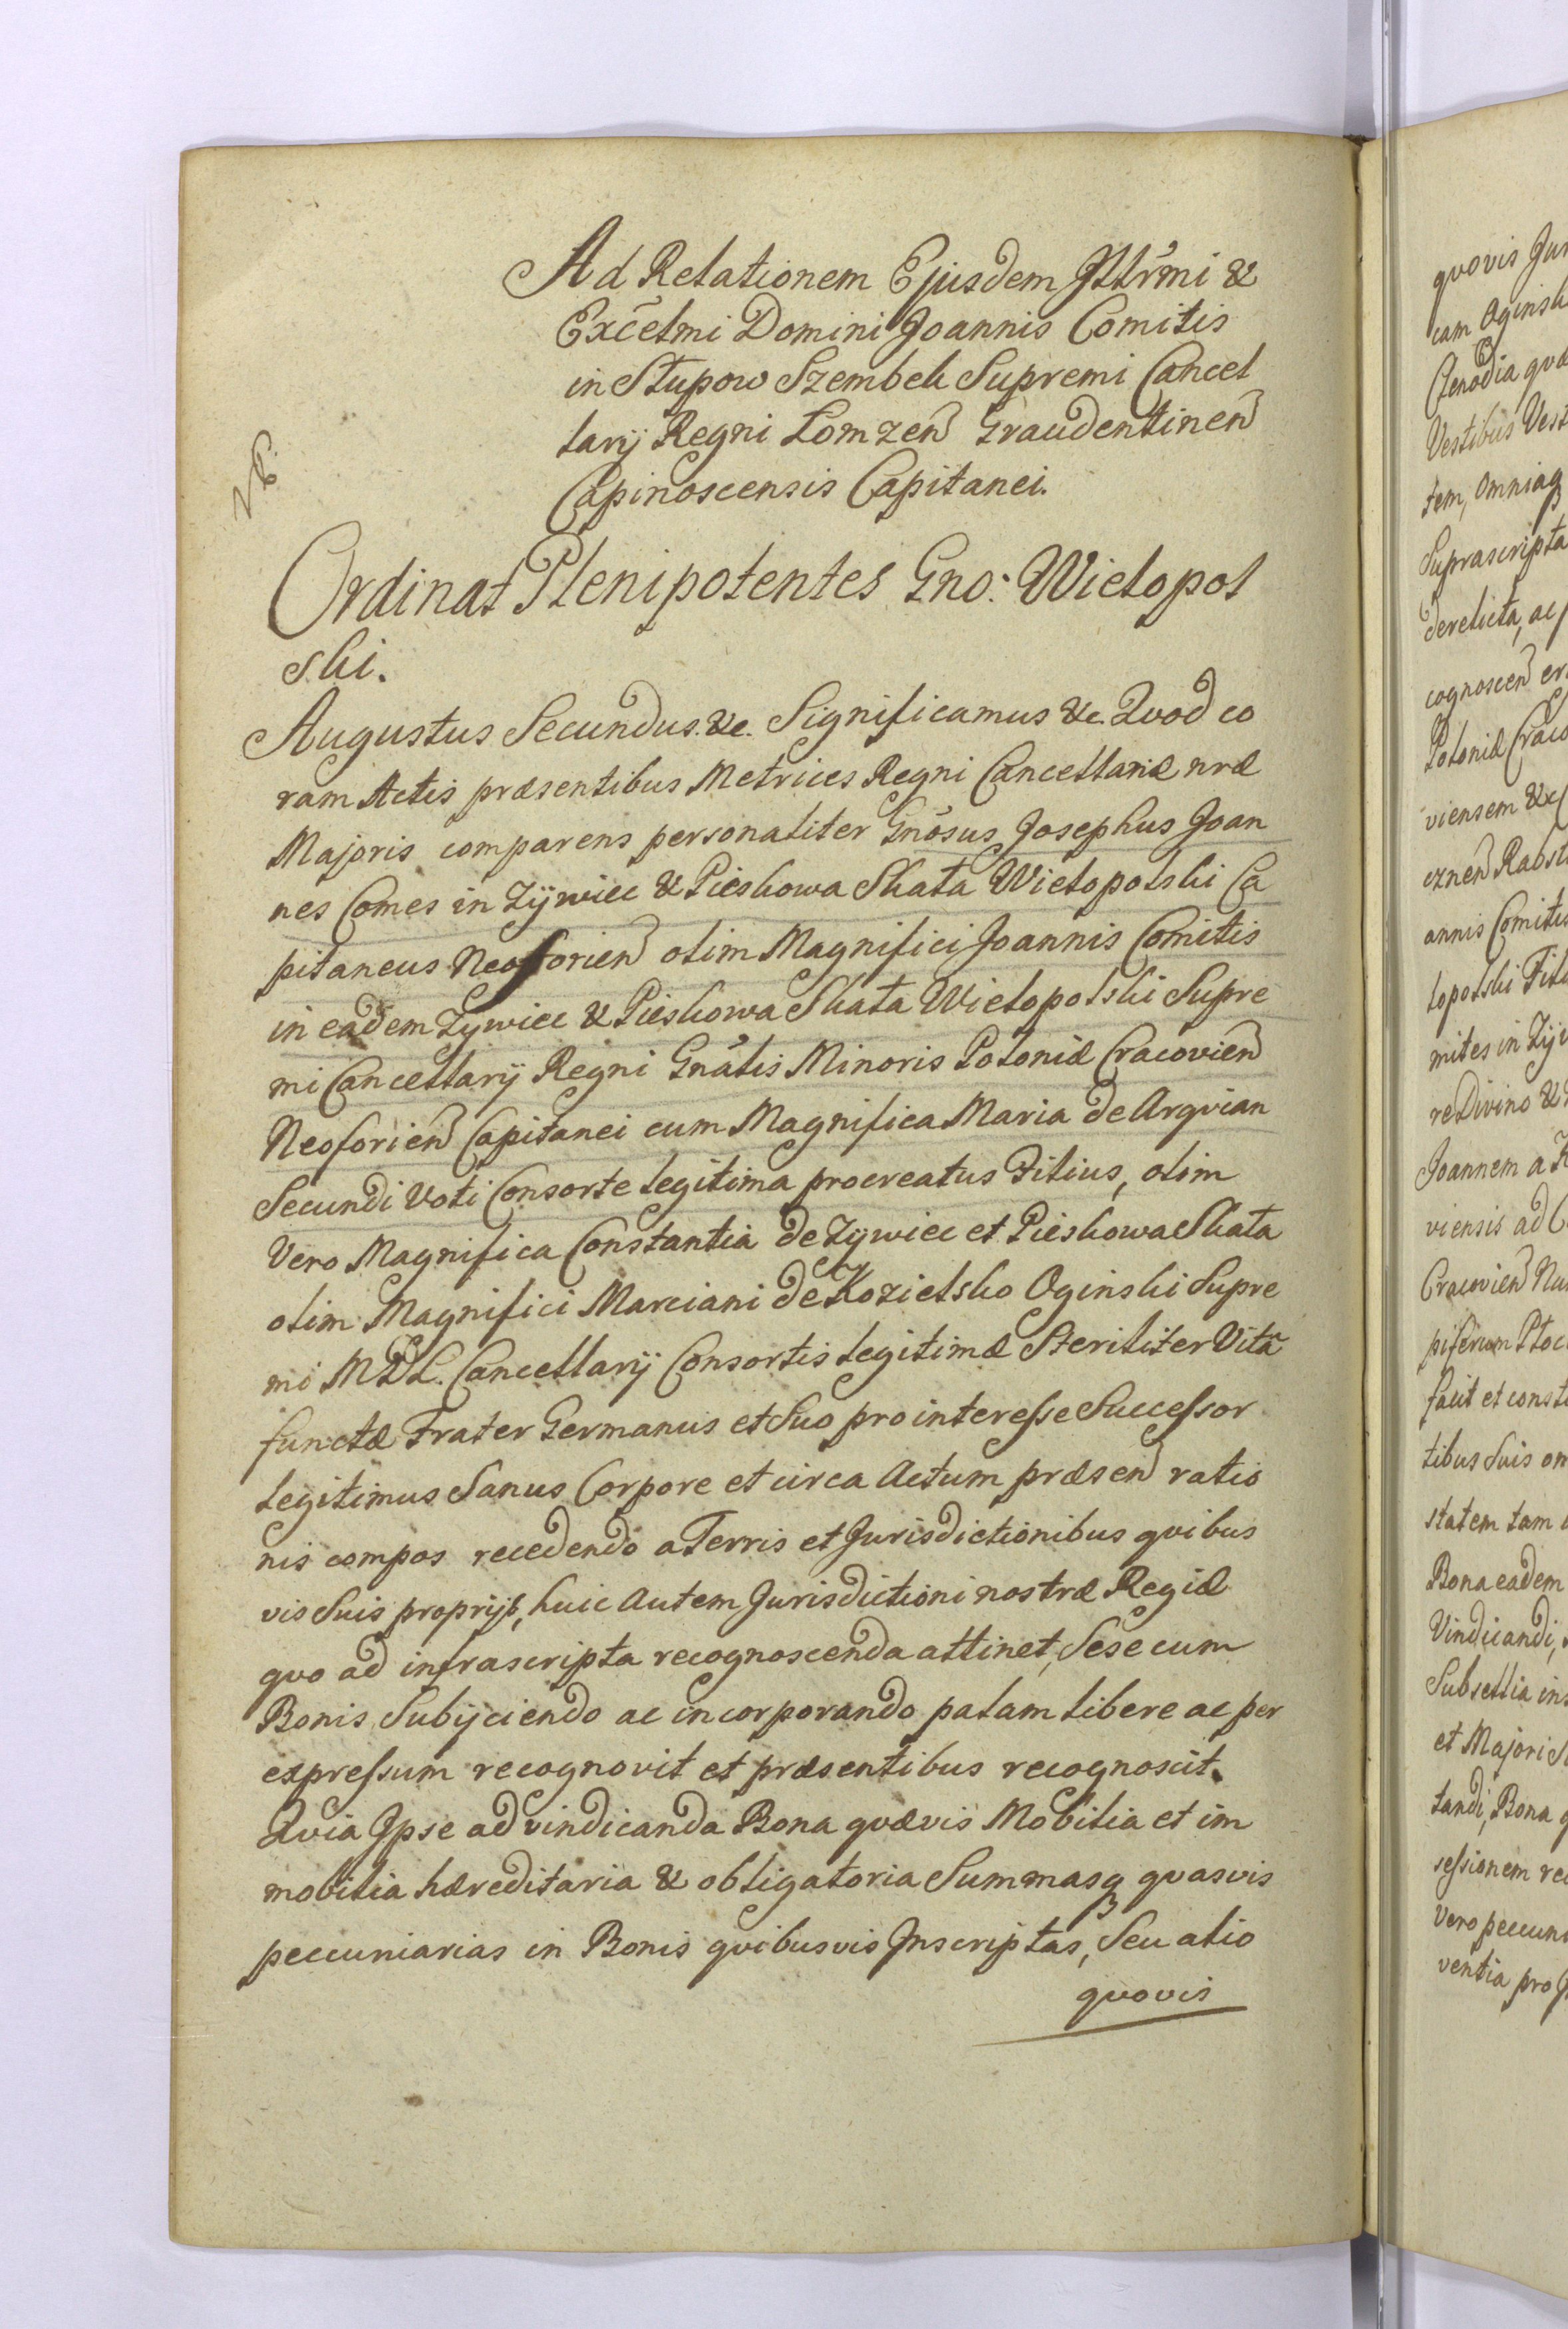 Ad Relationem Ejusdem Jllr̃mi &
Exc̃elmi Domini Joannis Comitis
in Słupow Szembek Supremi Cancel
larij Regni Lomzen̄ Graudentinen̄
Capinoscensis Capitanei.
NB.
Ordinat Plenipotentes Gno: Wielopol
ski.
Augustus Secundus. &c. Significamus &c. Qvod co
ram Actis præsentibus Metrices Regni Cancellariæ nræ
Majoris comparens personaliter Gnõsus Josephus Joan
nes Comes in Zÿwiec & Pieskowa Skała Wielopolski Ca
pitaneus Neoforien̄ olim Magnifici Joannis Comitis
in eadem Zywiec & Pieskowa Skała Wielopolski Supre
mi Cancellarij Regni Gnãlis Minoris Poloniæ Cracovien̄
Neoforien̄ Capitanei cum Magnifica Maria de Arqvian
Secundi Voti Consorte legitima procreatus Filius, olim
Vero Magnifica Constantia de Zywiec et Pieskowa Skała
olim Magnifici Marciani de Kozielsko Oginski Supre
mi MDL. Cancellarij Consortis legitimæ Steriliter Vitã
functæ Frater Germanus et Suo pro interesse Successor
legitimus Sanus Corpore et circa Actum præsen̄ ratio
nis compos recedendo a Terris et Jurisdictionibus qvibus
vis Suis proprijs, huic autem Jurisdictioni nostræ Regiæ
qvo ad infrascripta recognoscenda attinet, Sese cum
Bonis Subijciendo ac incorporando palam libere ac per
expressum recognovit et præsentibus recognoscit.
Qvia Jpse ad vindicanda Bona qvævis Mobilia et im
mobilia hæreditaria & obligatoria Summasq qvasvis
peccuniarias in Bonis qvibusvis Jnscriptas, Seu alio
qvovis
qvovis Jur
cam Oginsk
Clenodia qvæ
Vestibus Vest
tem, Omniaq
Suprascripta
derelicta, ac p
cognoscen̄ er
Poloniæ Craco
viensem &c C
cznen̄ Rabst
annis Comitis
lopolski Fili
mites in Zÿw
re Divino &
Joannem a K
viensis ad C
Cracovien̄ Nu
piferum Ploc
facit et consti
tibus Suis om
statem tam i
Bona eadem
Vindicandi,
Subsellia ins
et Majori S
tandi, Bona q
sessionem rec
Vero peccuni
ventia pro J